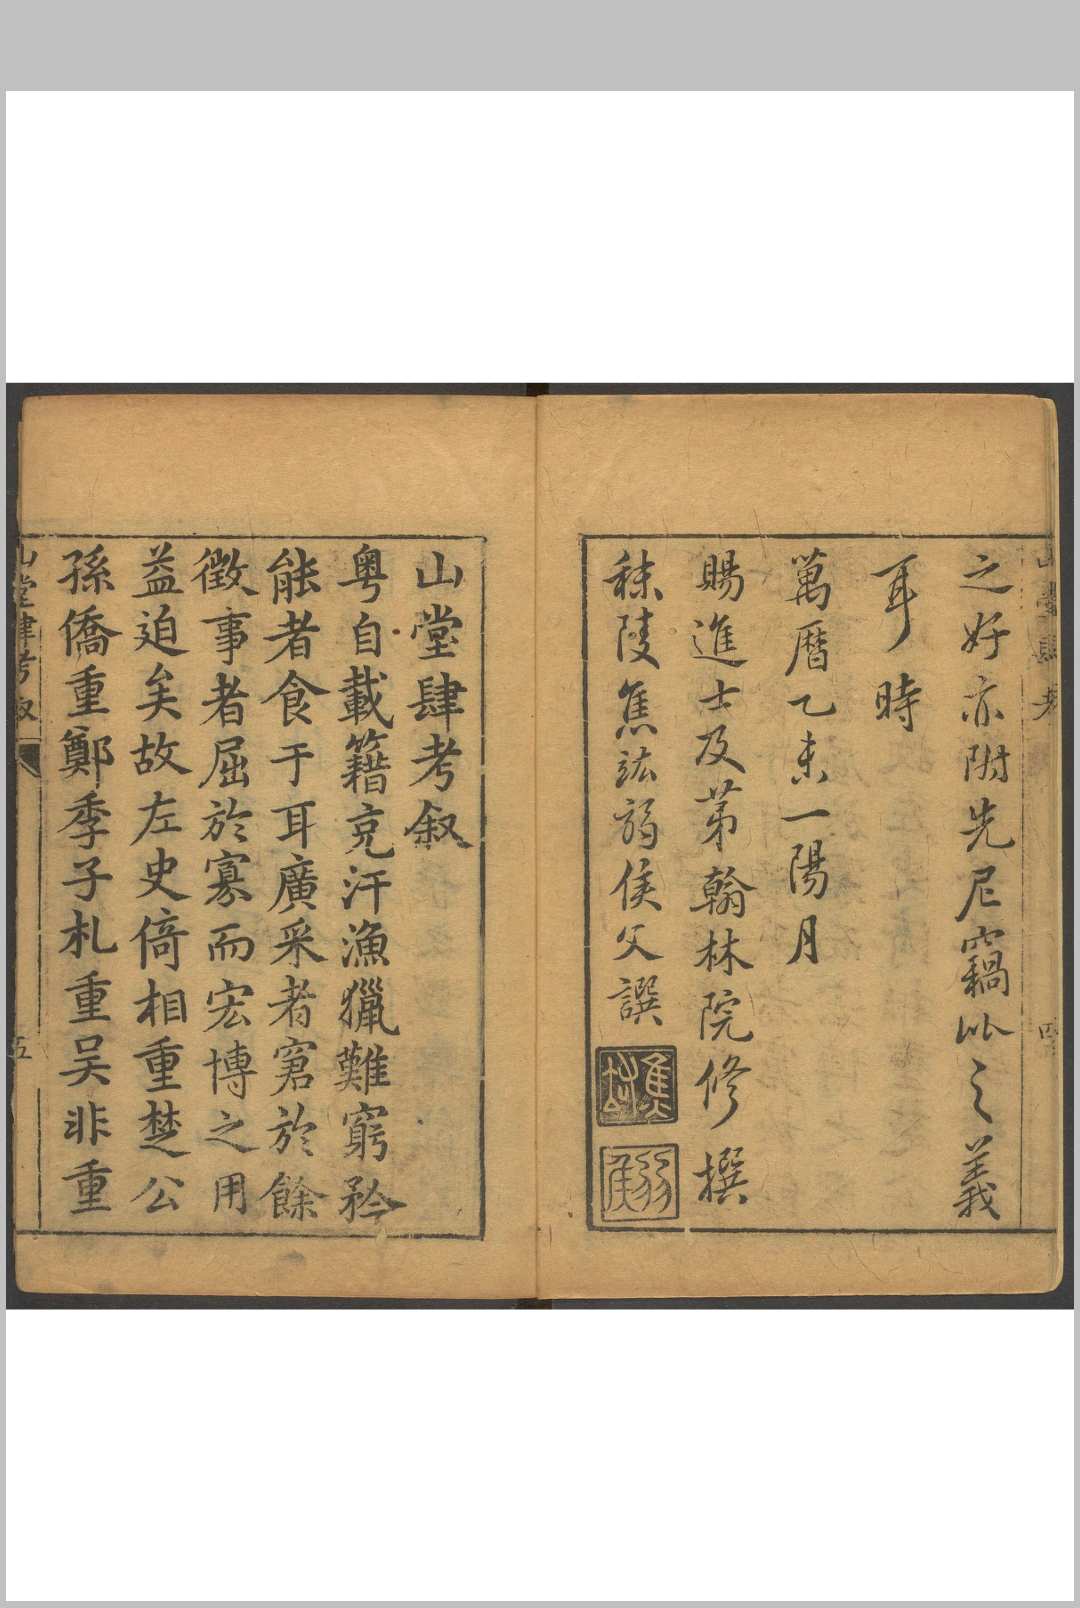 之好亦附先尼竊比之義
耳時
萬曆乙未一陽月
賜進士及第翰林院修撰
秣陵焦竑弱侯父譔
山堂肆考叙
粵自載籍充汗漁獵難窮矜
能者食于耳廣采者窘於餘
徵事者屈於寡而宏博之用
益迫矣故左史倚相重楚公
孫僑重鄭季子札重吴非重
山堂肆考 叙
五